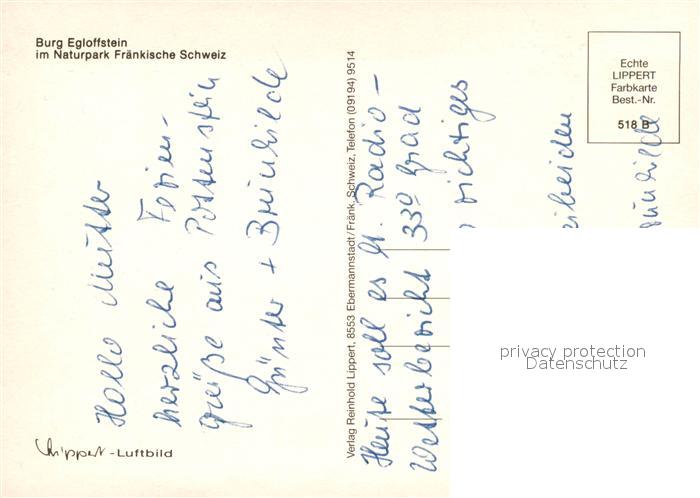 Burg Egloffstein
im Naturpark Fränkische Schweiz
Echte
LIPPERT
Farbkarte
Best.-Nr.
518 B
Hallo Mutter
herzliche Ferien-
grüße aus Pottenstein
Günter + Brünhilde
Verlag Reinhold Lippert, 8553 Ebermannstadt/Fränk. Schweiz, Telefon (09194) 9514
Heute soll es lt. Radio-
Wetterbericht 33º Grad
richtiges
privacy protection
Datenschutz
Lippert-Luftbild